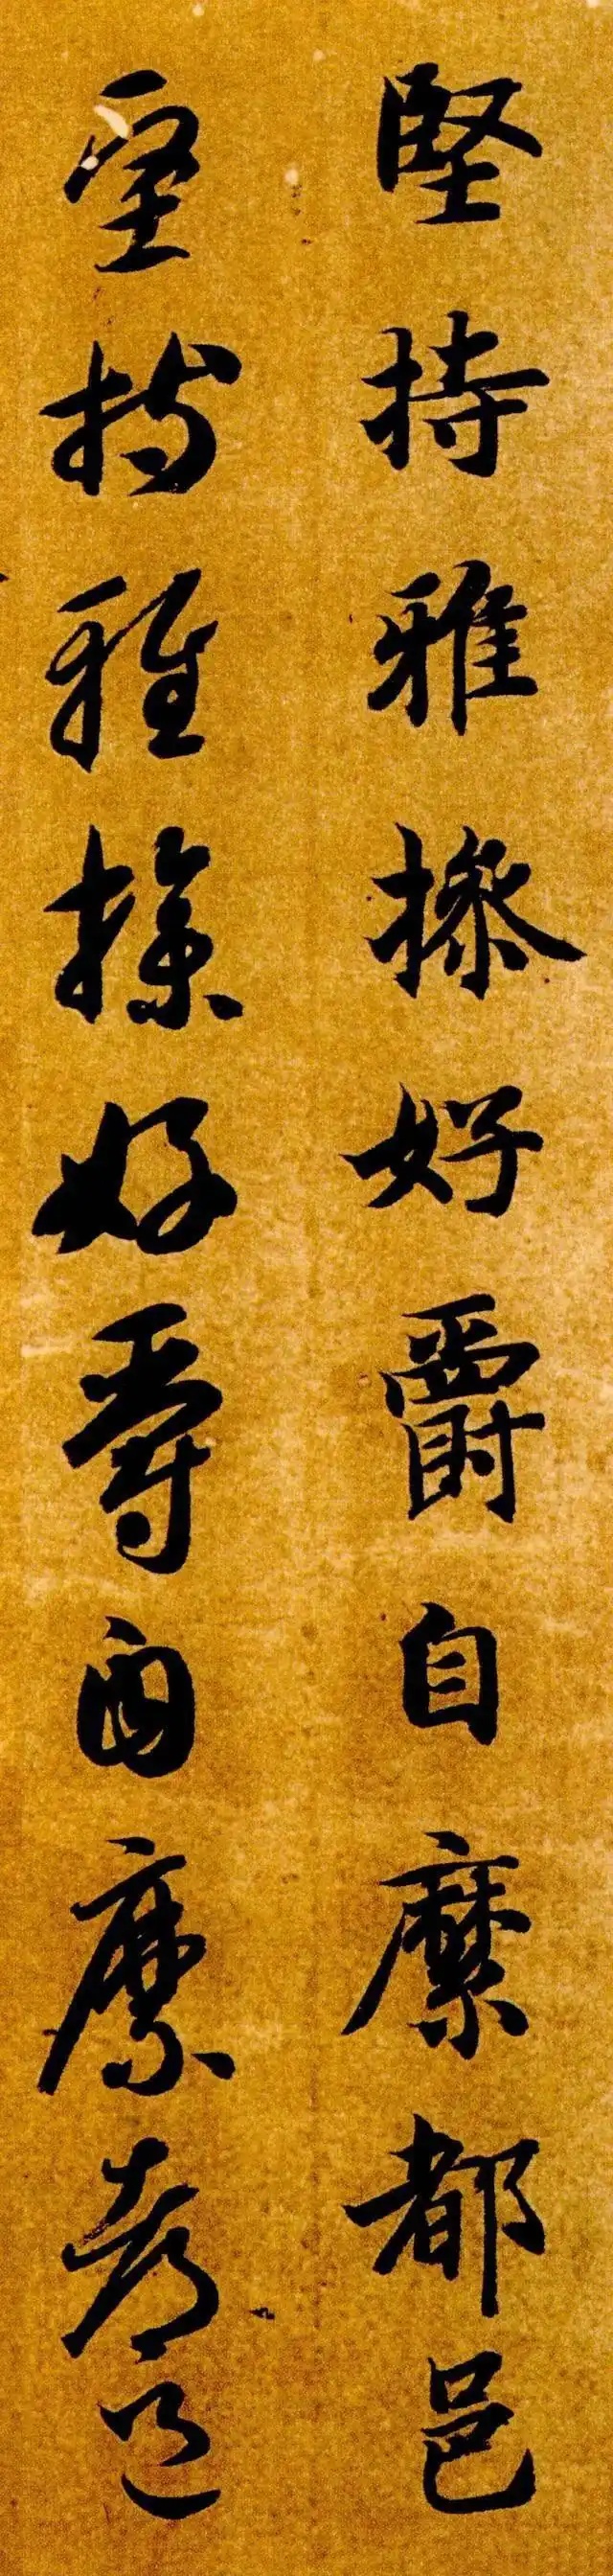 堅持雅操好爵自縻都邑
堅持雅操好爵自縻都邑